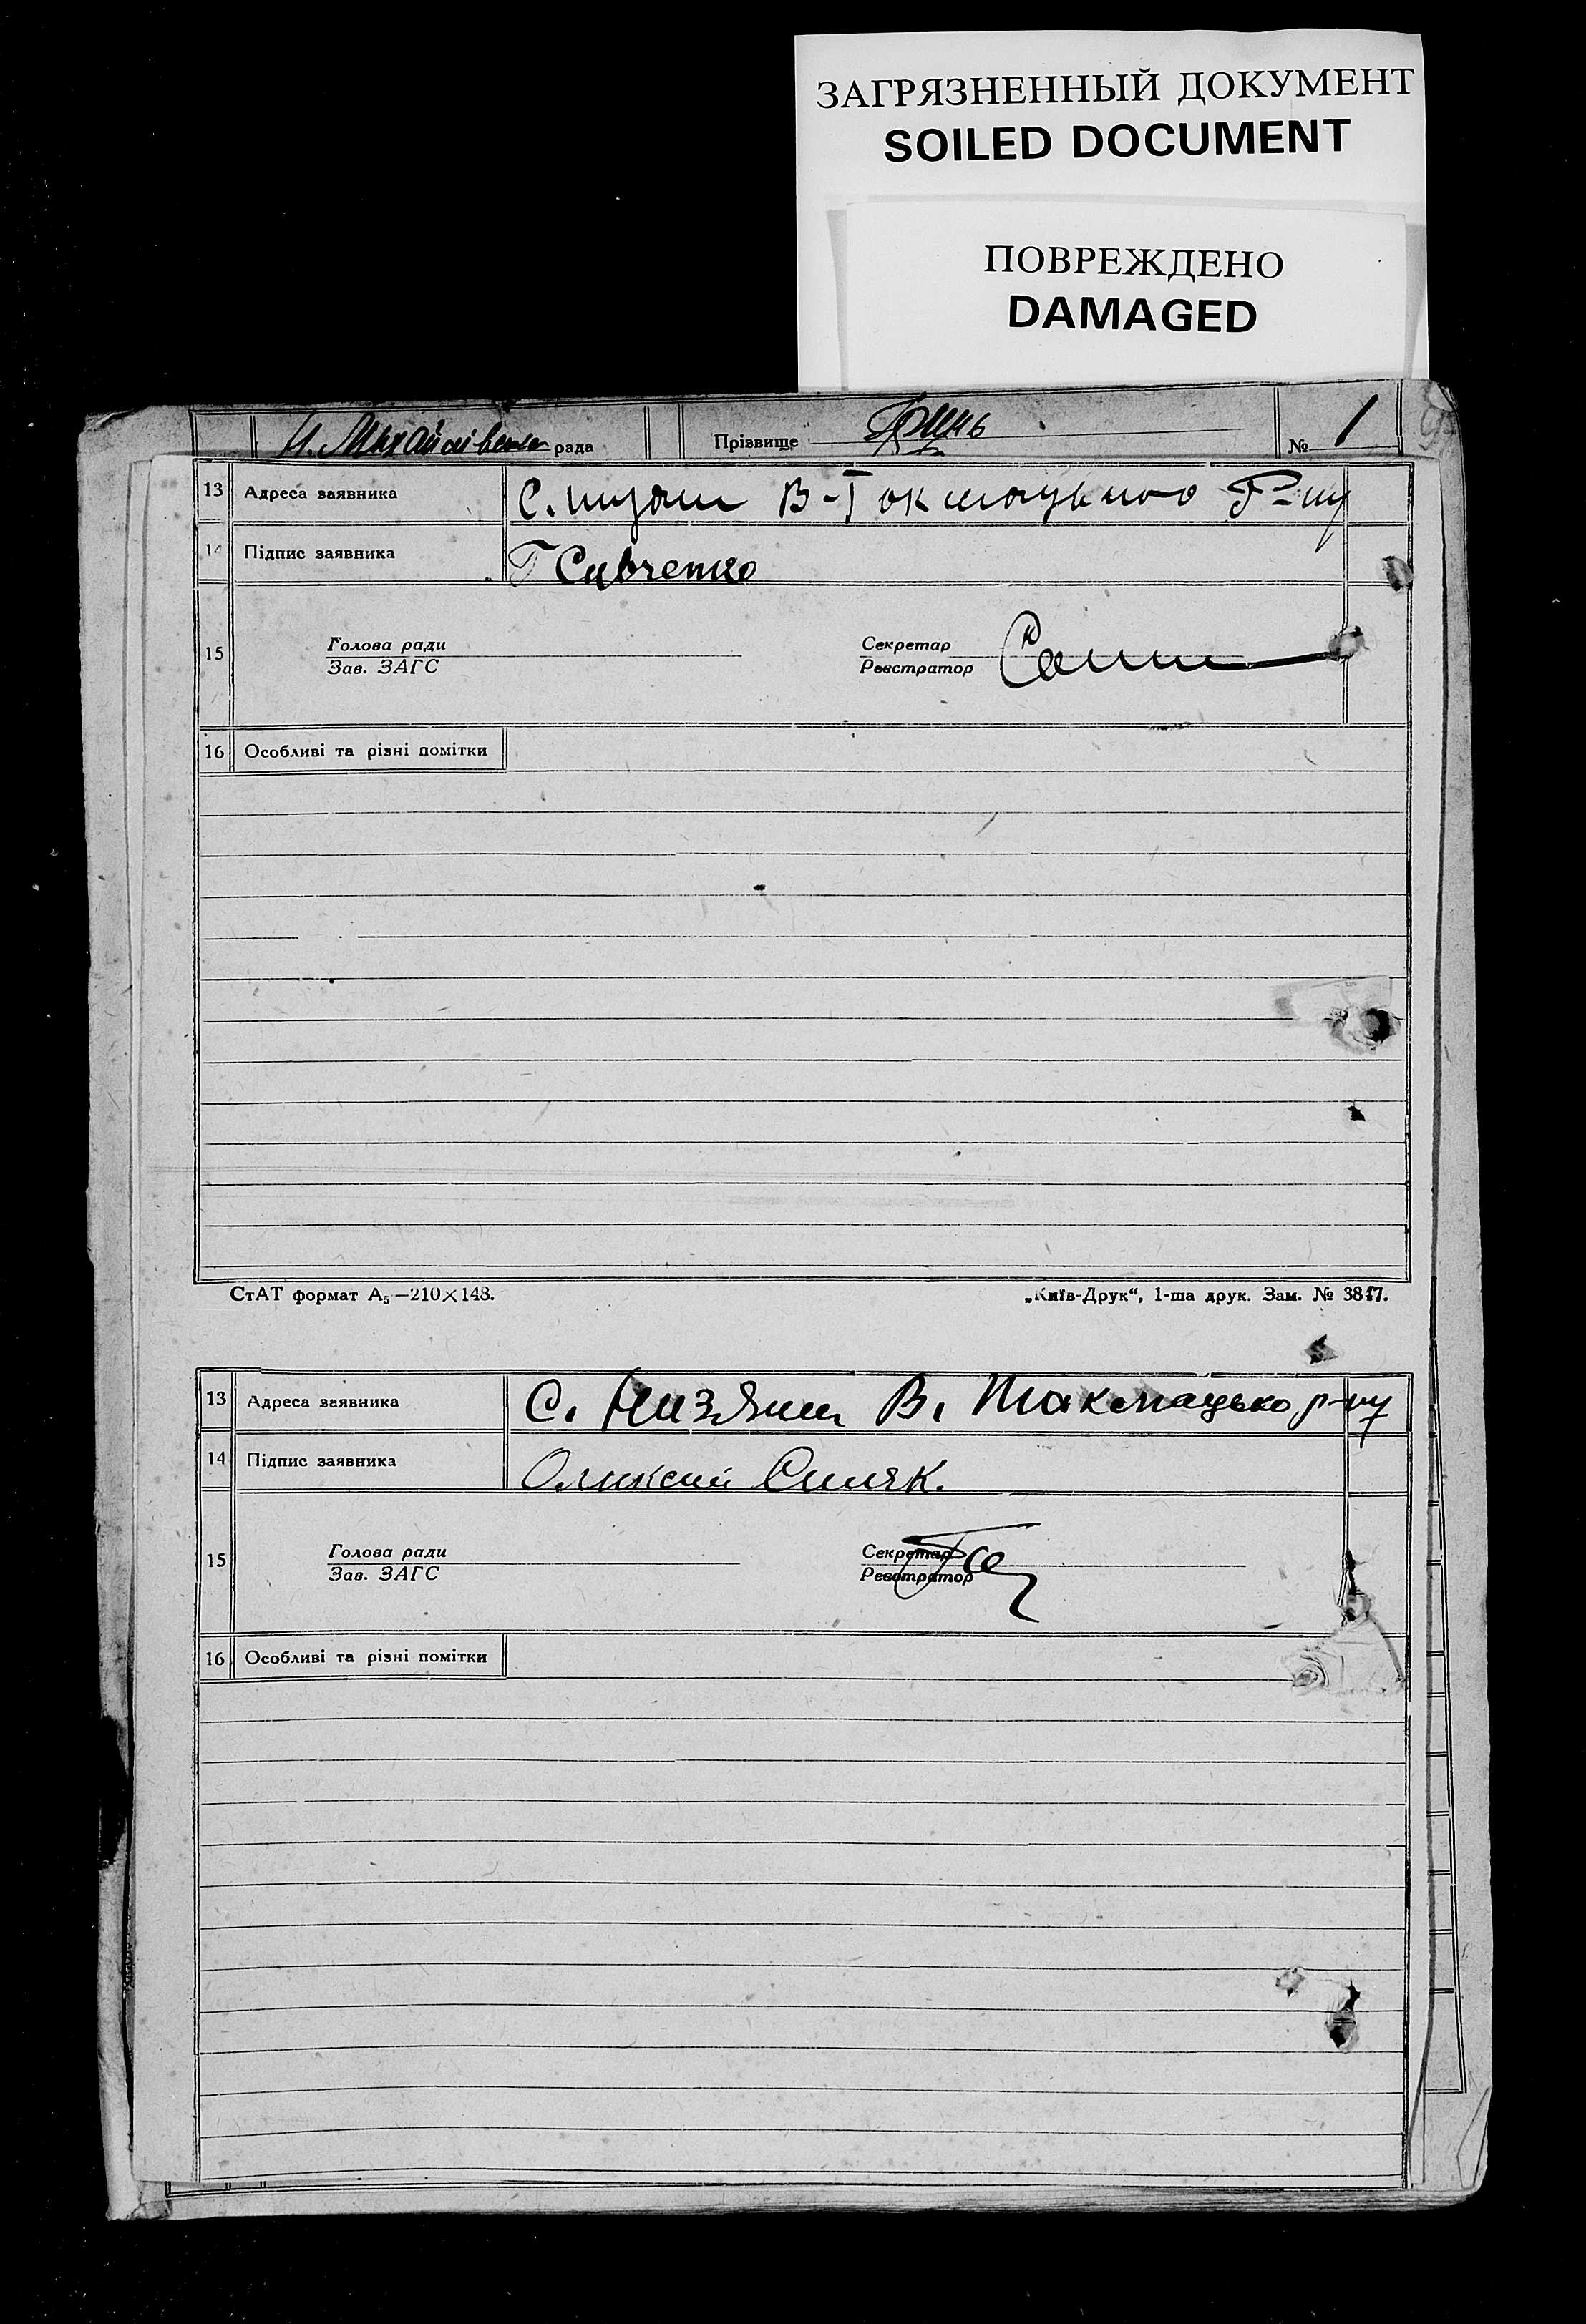 ЗАГРЯЗНЕННЫЙ ДОКУМЕНТ
SOILED DOCUMENT
ПОВРЕЖДЕНО
DAMAGED
рада Прізвище Гринь № 1
13 Адреса заявника С. В-Токмацького Р-ну
14 Підпис заявника Г Савченко
15 Голова ради Секретар
Зав. ЗАГС Реєстратор
16 Особливі та різні помітки
СтАТ формат А₅—210×148. „Київ-Друк“, 1-ша друк. Зам. № 3847.
13 Адреса заявника С. Низяни В. Токмацько р-ну
14 Підпис заявника Оликсий Симяк.
15 Голова ради Секретар
Зав. ЗАГС Реєстратор
16 Особливі та різні помітки